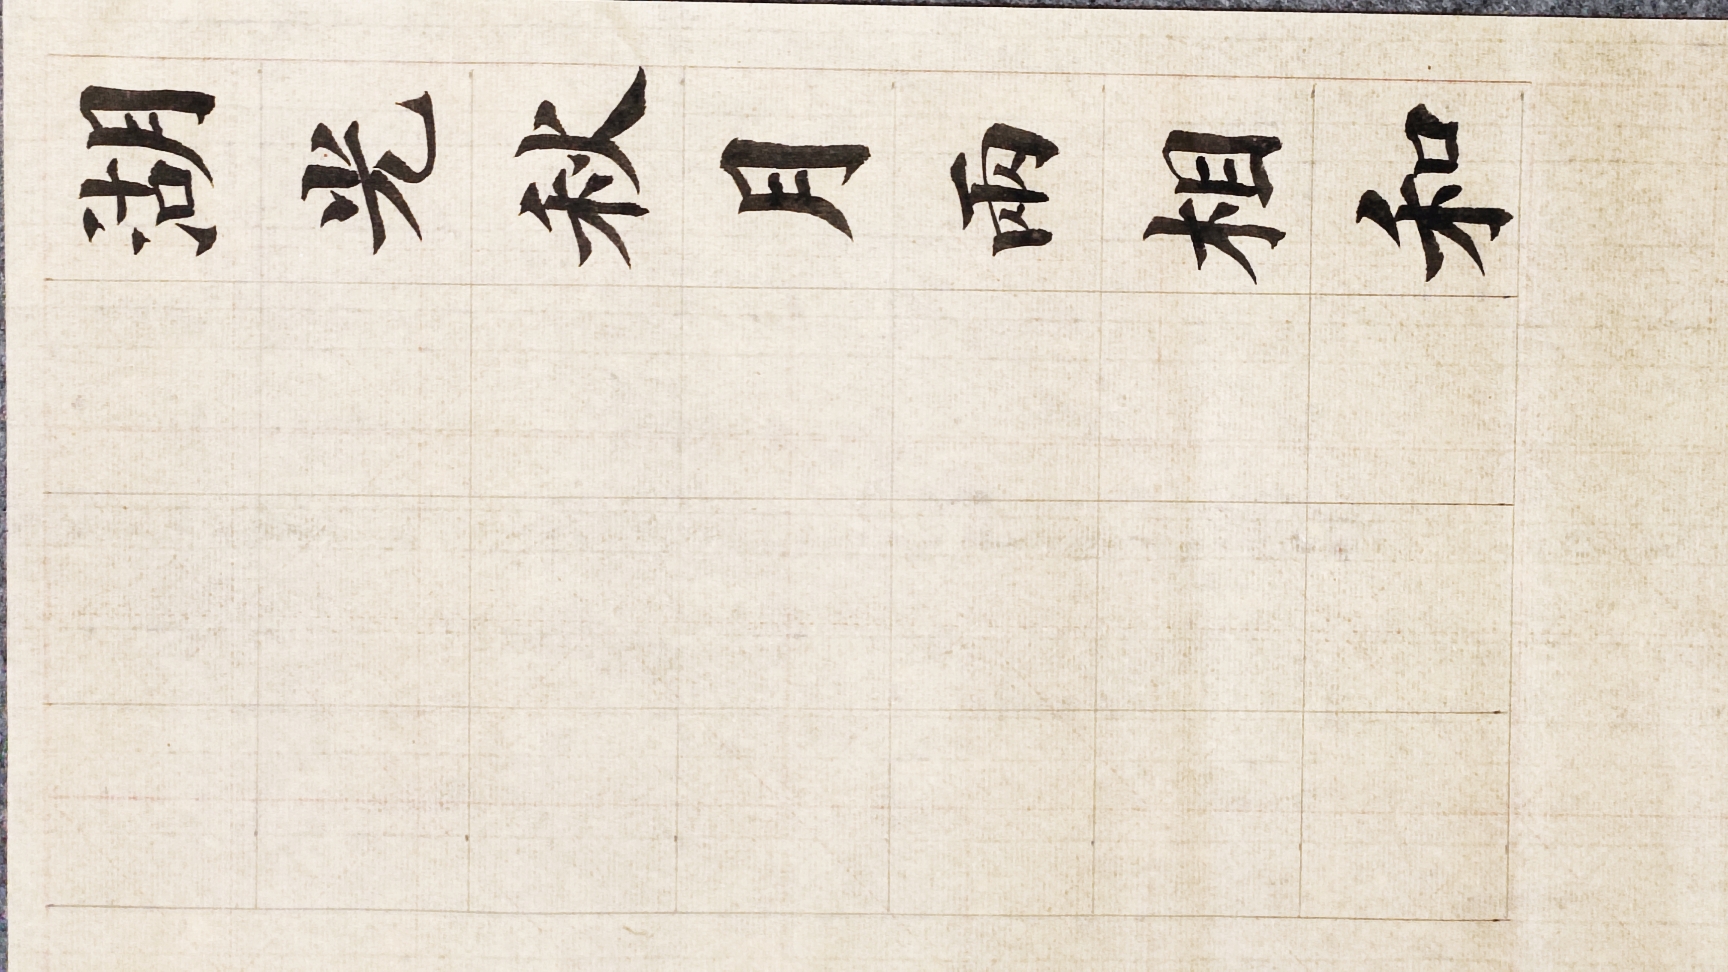 湖光秋月兩相和